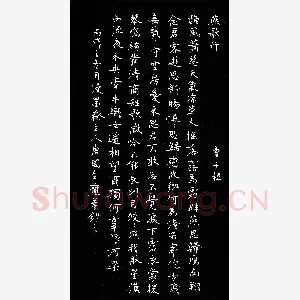 燕歌行 曹子桓
秋風蕭瑟天氣涼草木搖落露為霜羣燕辭歸雁南翔
念君客遊思斷腸慊慊思歸戀故鄉何為淹留寄他方賤
妾煢煢守空房憂來思君不敢忘不覺淚下霑衣裳援
琴鳴絃發清商短歌微吟不能長明月皎皎照我牀星漢
西流夜未央牽牛織女遙相望爾獨何辜限河梁
主人唐國
Shufawang.CN